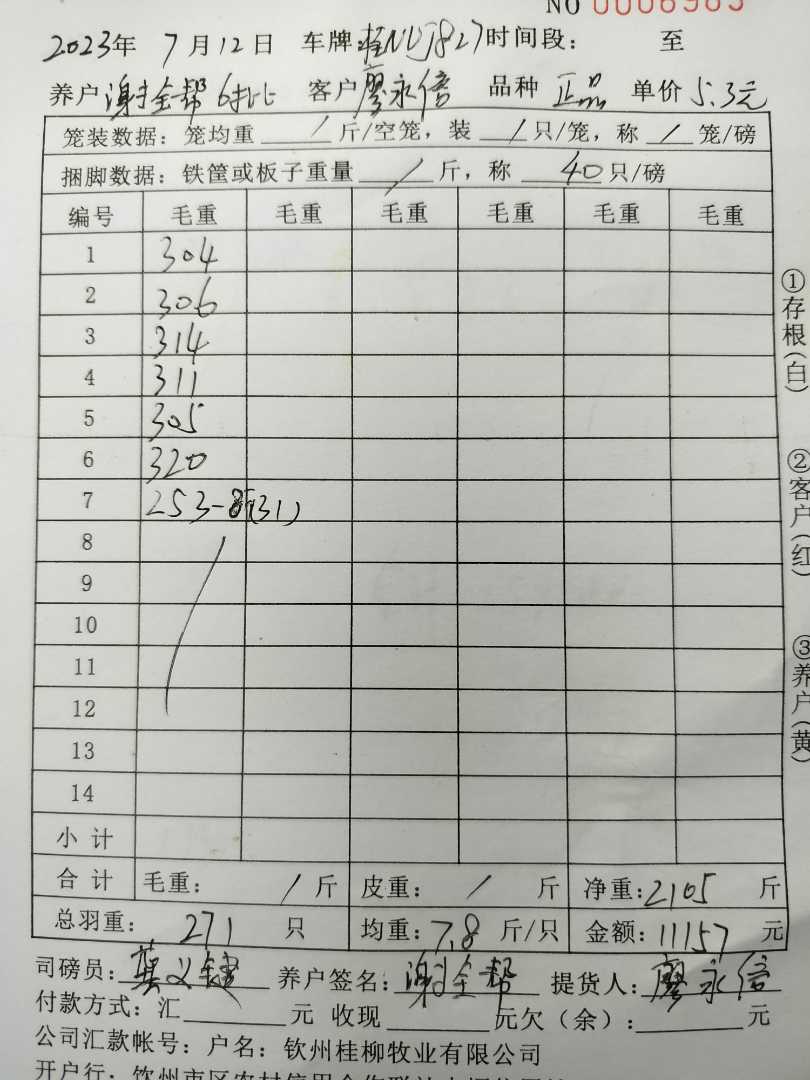 NO 0006985
2023年 7月12日 车牌:桂NUJ827 时间段: 至
养户 谢全帮 6批 客户 廖永信 品种 正品 单价 5.3元
笼装数据: 笼均重 / 斤/空笼, 装 / 只/笼, 称 / 笼/磅
捆脚数据: 铁筐或板子重量 / 斤, 称 40 只/磅
编号 毛重 毛重 毛重 毛重 毛重 毛重
1 304
2 306
3 314
4 311
5 305
6 320
7 253- (31)
8
9
10
11
12
13
14
小计
合计 毛重: / 斤 皮重: / 斤 净重: 2105 斤
总羽重: 271 只 均重: 7.8 斤/只 金额: 11157 元
司磅员: 养户签名: 谢全帮 提货人: 廖永信
付款方式: 汇 元 收现 元欠(余): 元
公司汇款帐号: 户名: 钦州桂柳牧业有限公司
开户行: 钦州市区农村信用合作联社
①存根(白)
②客户(红)
③养户(黄)